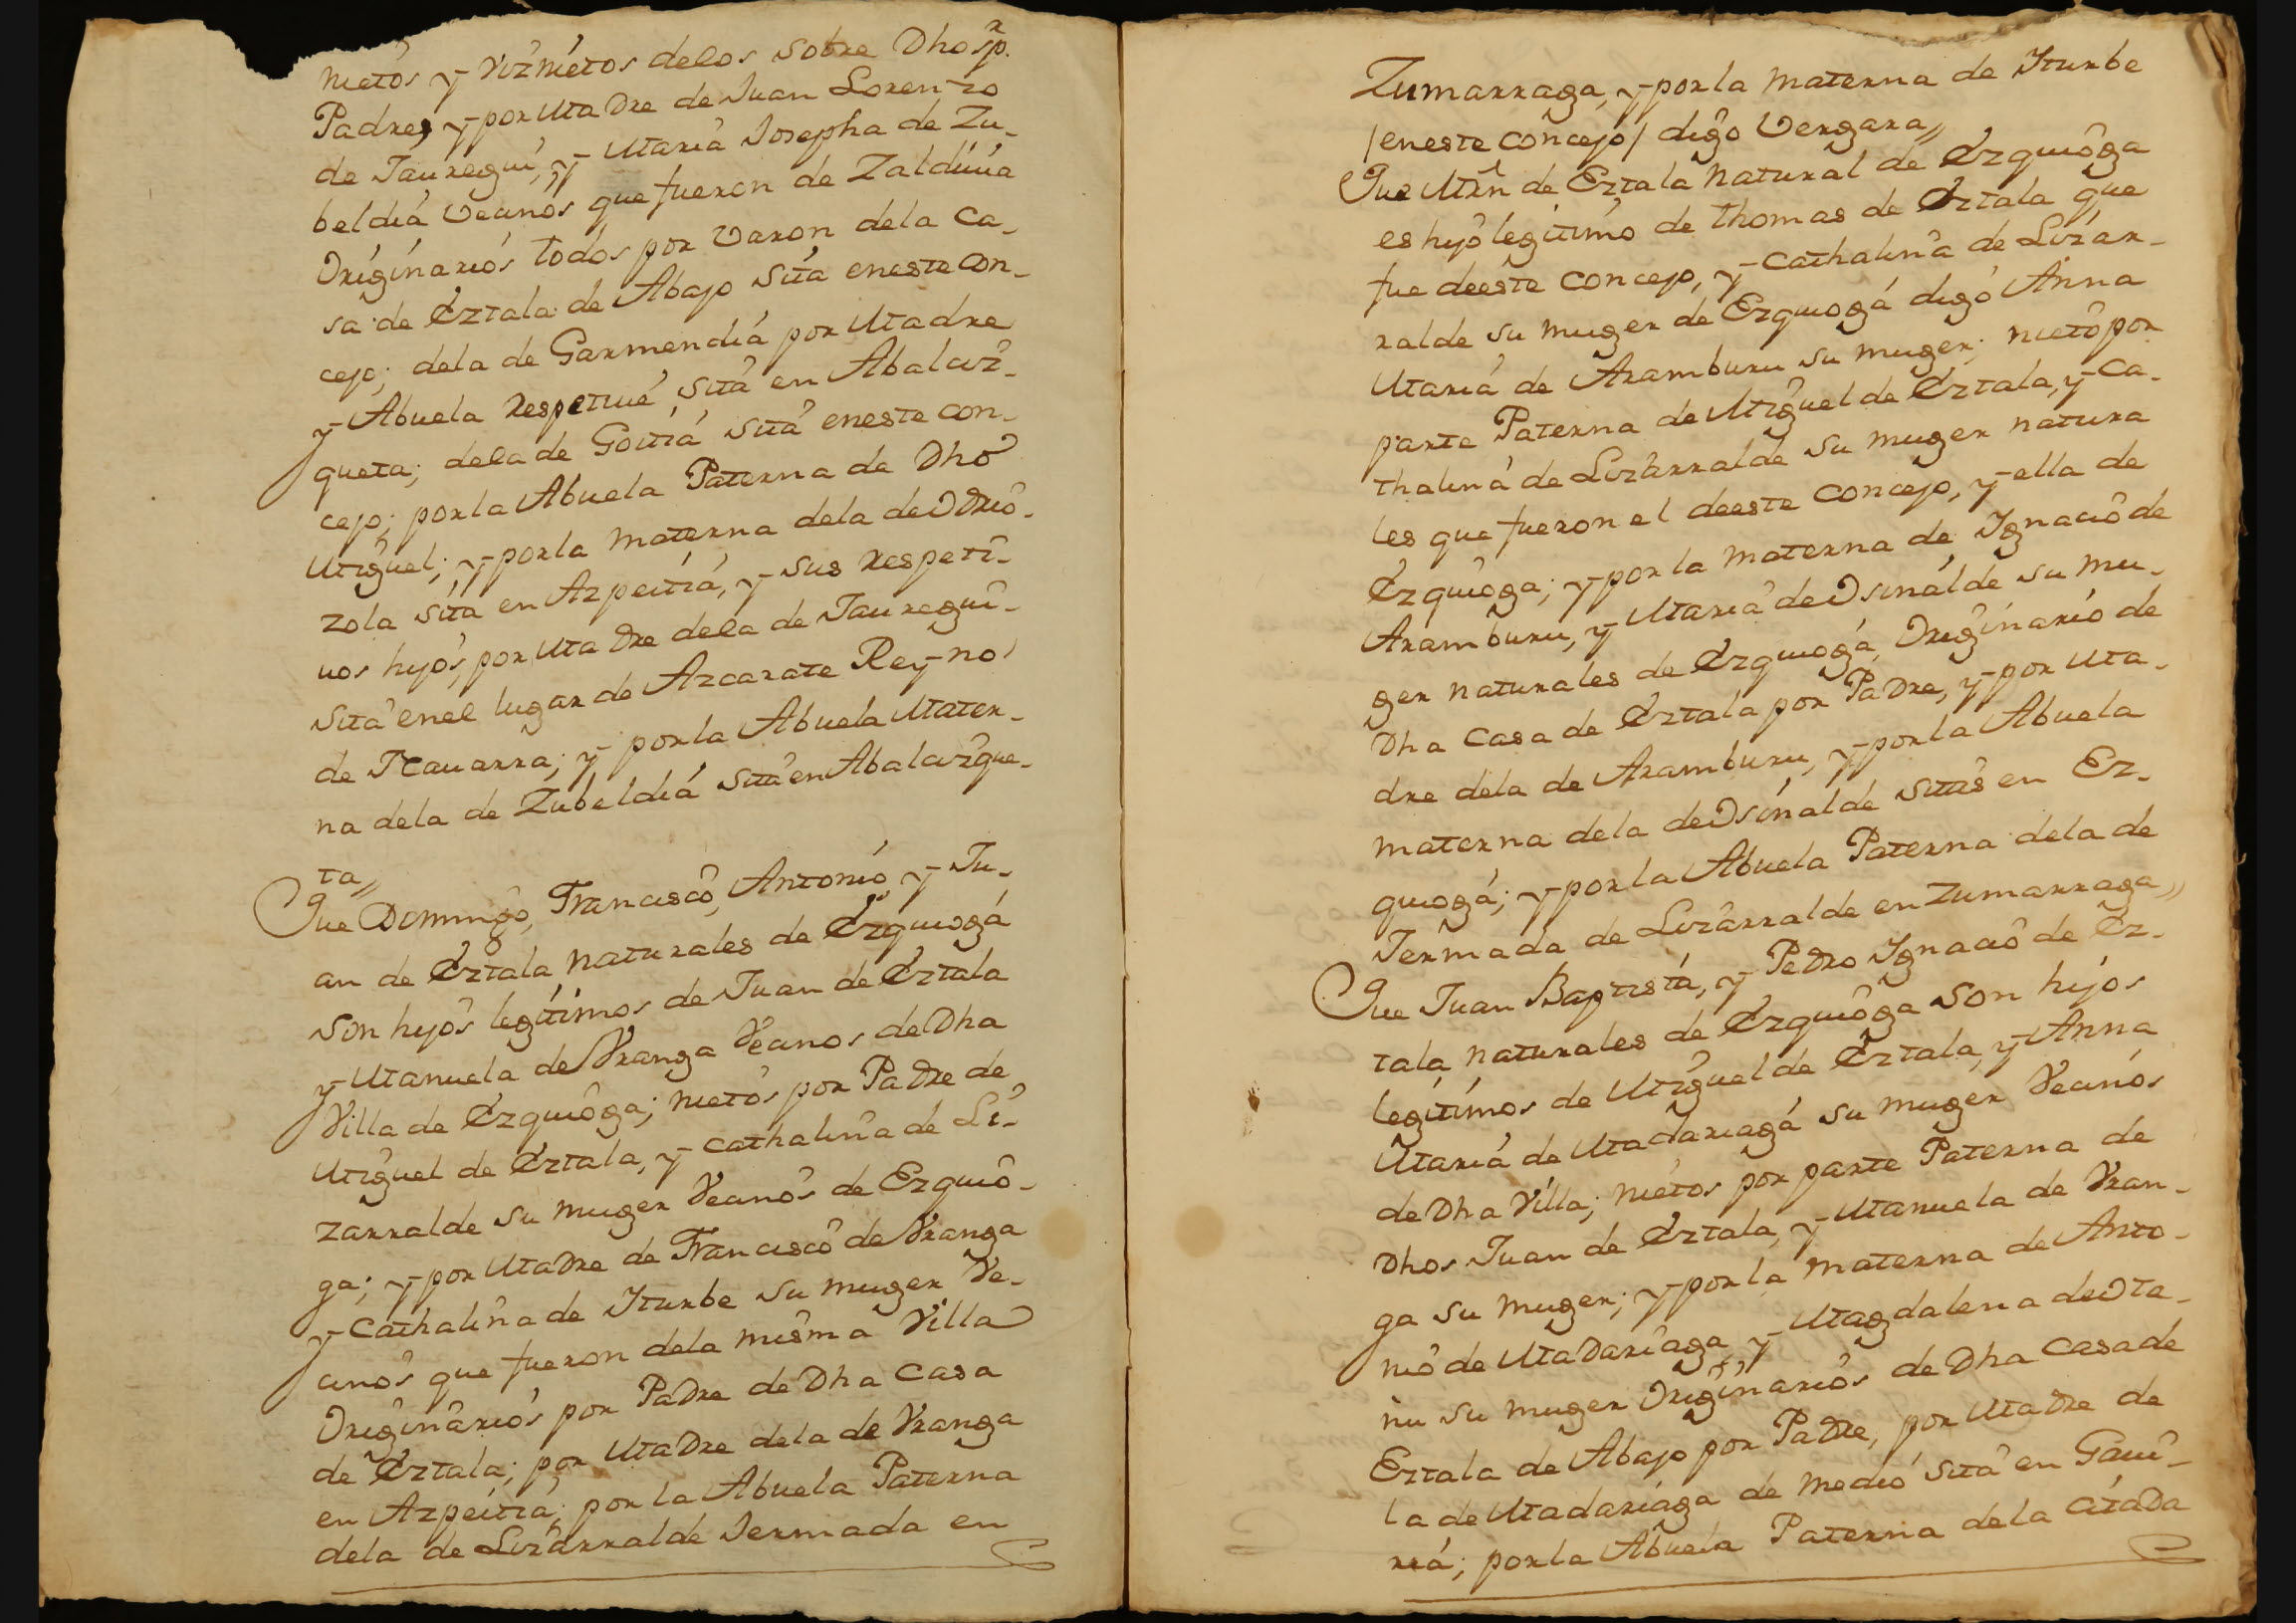 nietos y viznietos delos sobre Dhos p.r
Padres, y por Madre de Juan Lorenzo
de Jauregui, y Maria Josepha de Zu-
beldia Vecinos que fueron de Zaldivia
Originarios todos por Varon dela Ca-
sa de Eztala de Abajo sita eneste con-
cejo; dela de Garmendia por Madre
y Abuela respetive sita en Abalciz-
queta; dela de Goitia sita eneste con-
cejo; por la Abuela Paterna de Dho
Miguel; y por la materna dela de Odrio-
zola sita en Azpeitia, y sus respeti-
vos hijos, por Madre dela de Jauregui-
sita enel lugar de Azcarate Reyno
de Navarra; y por la Abuela Mater-
na dela de Zubeldia sita en Abalcizque-
ta„
Que Domingo, Francisco, Antonio y Ju-
an de Eztala naturales de Ezquioga
son hijos legitimos de Juan de Eztala
y Manuela de Vranga Vecinos de Dha
Villa de Ezquioga; nietos por Padre de
Miguel de Eztala, y Cathalina de Li-
zarralde su muger Vecinos de Ezquio-
ga; y por Madre de Francisco de Vranga
y Cathalina de Yturbe su muger Ve-
cinos que fueron dela misma Villa
Originarios por Padre de Dha Casa
de Eztala; por Madre dela de Vranga
en Azpeitia; por la Abuela Paterna
dela de Lizarralde Jermada en
Zumarraga, y por la materna de Yturbe
/eneste concejo/ digo Vergara„
Que Mrn de Eztala natural de Ezquioga
es hijo legitimo de Thomas de Eztala que
fue deeste concejo, y Cathalina de Lizar-
ralde su muger de Ezquioga digo Anna
Maria de Aramburu su muger; nieto por
parte Paterna de Miguel de Eztala, y Ca-
thalina de Lizarralde su muger natura
les que fueron el deeste concejo, y ella de
Ezquioga; y por la materna de Ignacio de
Aramburu, y Maria de Osinalde su mu-
ger naturales de Ezquioga, Originario de
Dha Casa de Eztala por Padre, y por Ma-
dre dela de Aramburu, y por la Abuela
materna dela de Osinalde sitas en Ez-
quioga; y por la Abuela Paterna dela de
Jermada de Lizarralde en Zumarraga„
Que Juan Baptista, y Pedro Ignacio de Ez-
tala naturales de Ezquioga son hijos
legitimos de Miguel de Eztala, y Anna
Maria de Madariaga su muger Vecinos
de Dha Villa; nietos por parte Paterna de
Dhos Juan de Eztala, y Manuela de Vran-
ga su muger; y por la materna de Anto-
nio de Madariaga y Magdalena de Ota-
nu su muger Originarios de Dha Casa de
Eztala de Abajo por Padre, por Madre de
la de Madariaga de medio sita en Gavi-
ria; por la Abuela Paterna dela citada